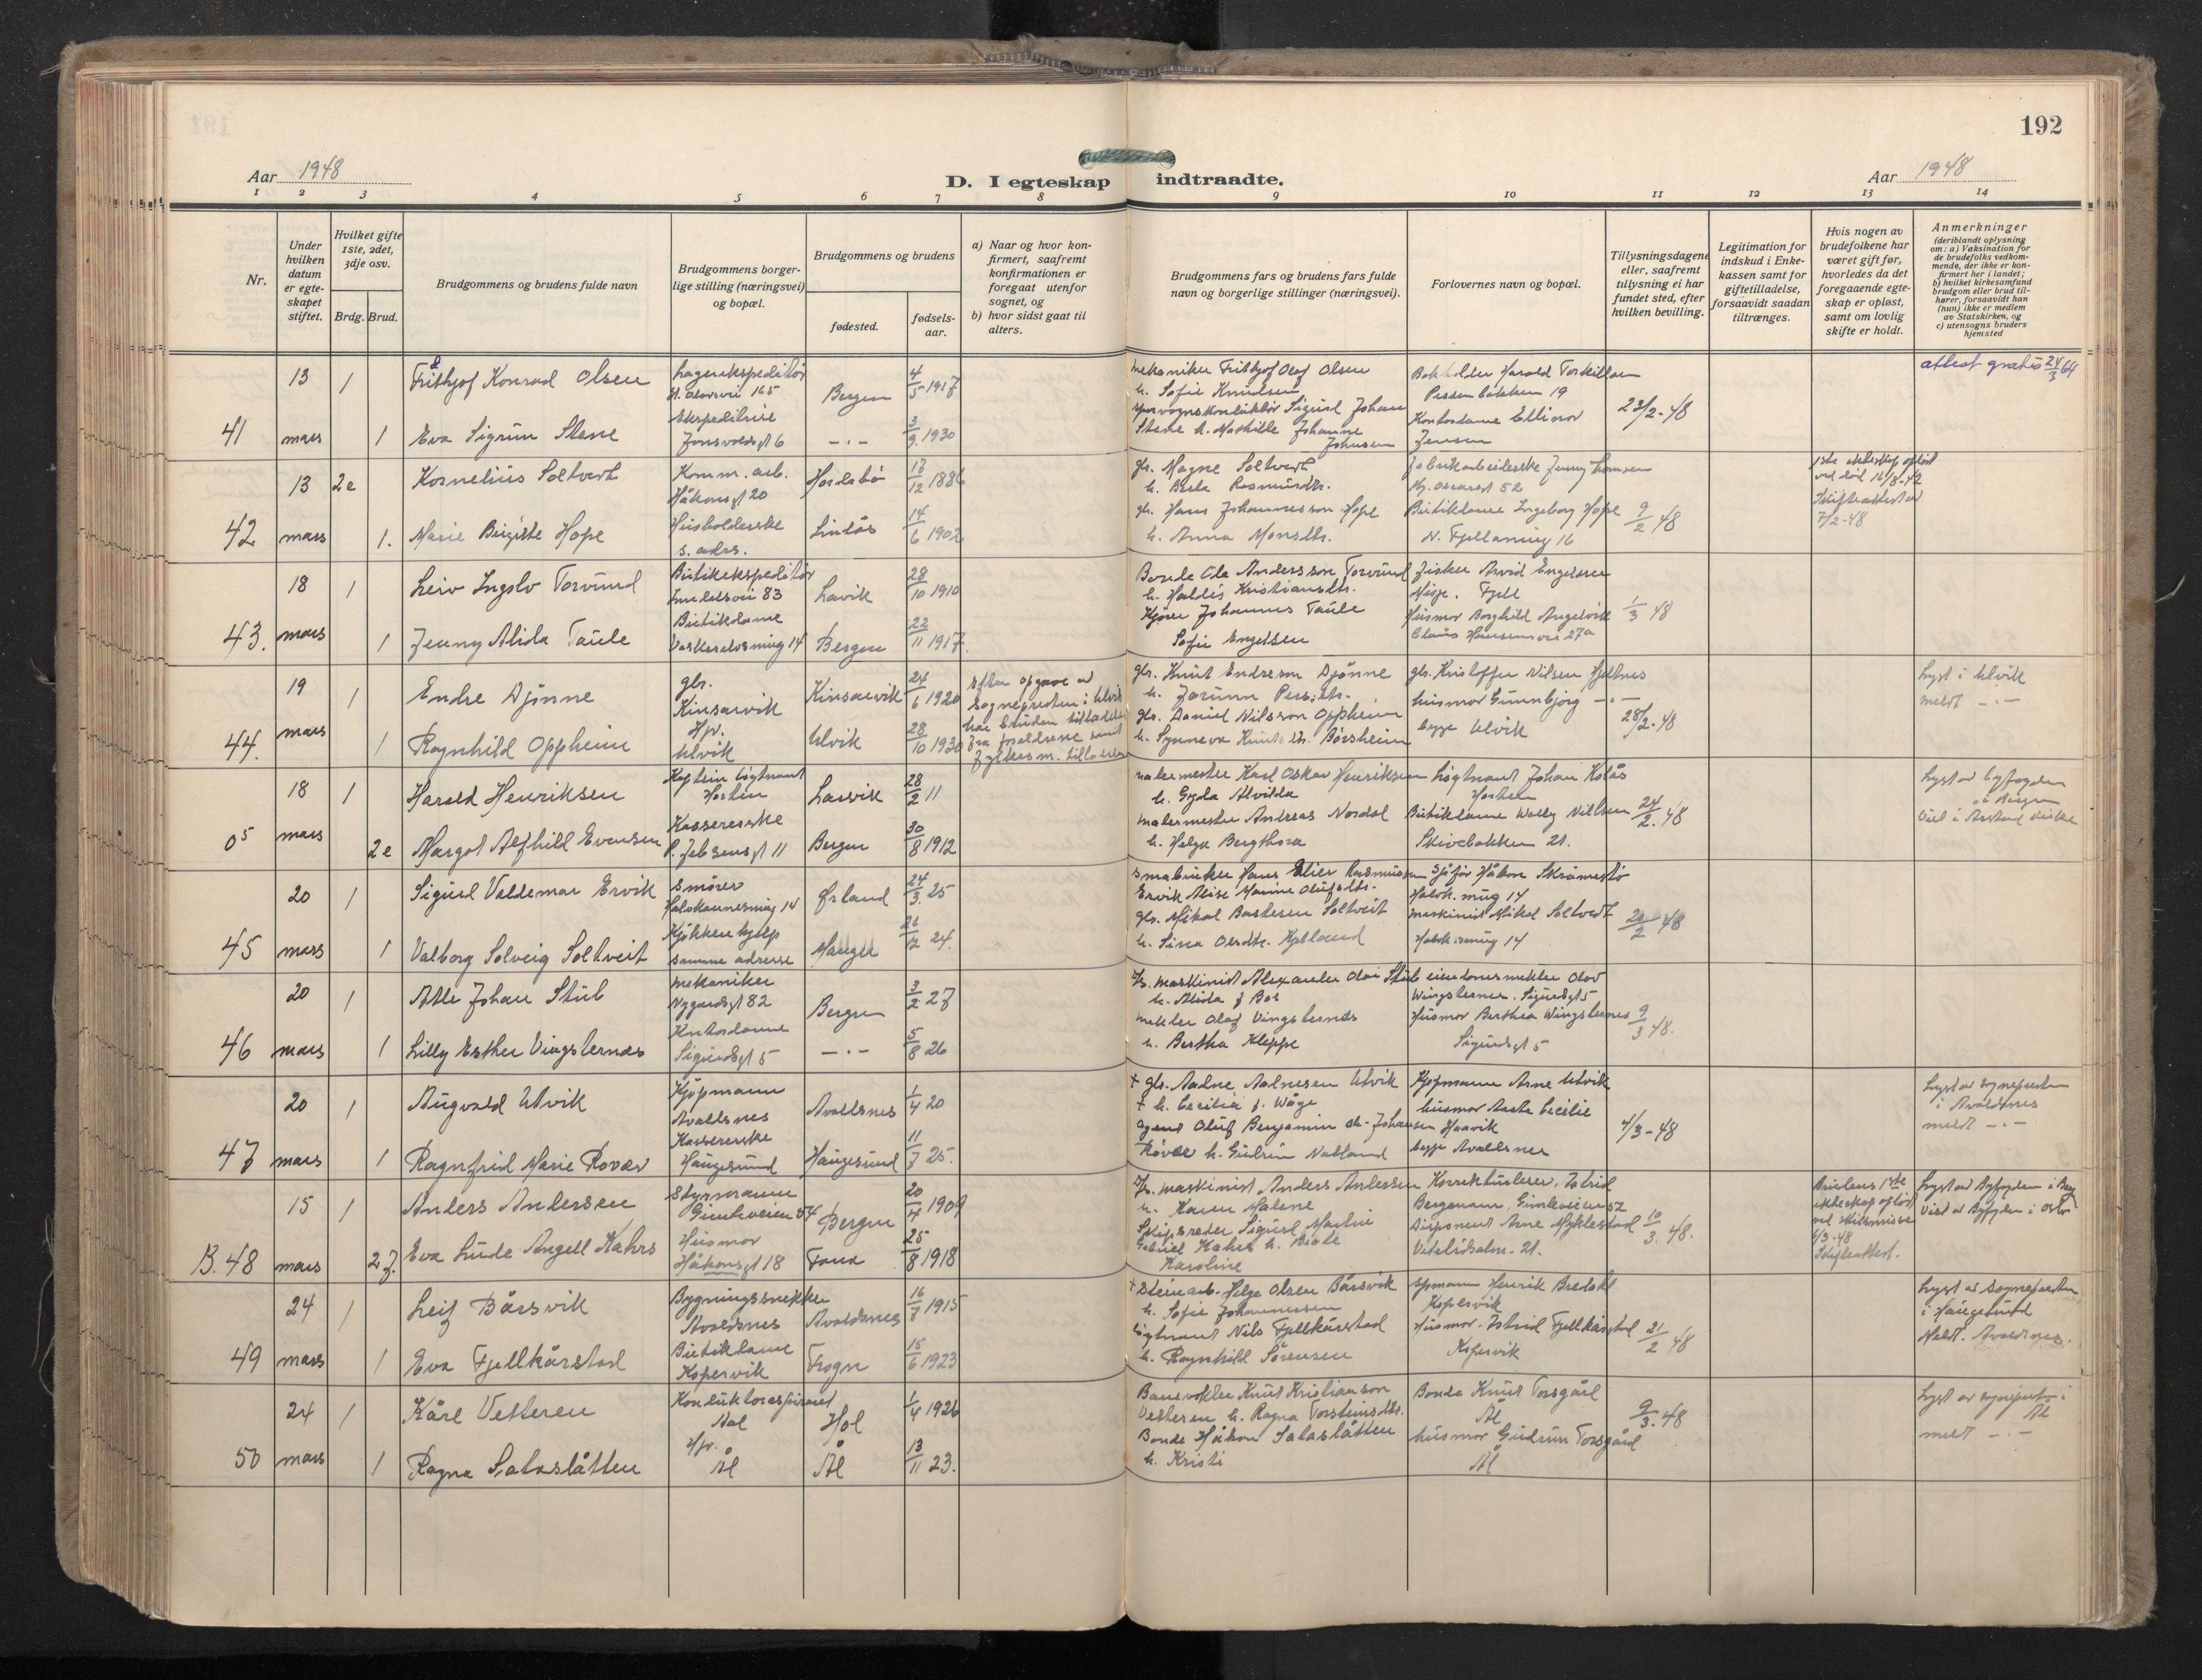 192
Aar 1948
D. I egteskap indtraadte.
Aar 1948
1 2 3 4 5 6 7 8 9 10 11 12 13 14
Nr.
Under hvilken datum er egteskapet stiftet.
Hvilket gifte 1ste, 2det, 3dje osv.
Brdg. Brud.
Brudgommens og brudens fulde navn
Brudgommens borgerlige stilling (næringsvei) og bopæl.
Brudgommens og brudens
fødested.
fødselsaar.
a) Naar og hvor konfirmert, saafremt konfirmationen er foregaat utenfor sognet, og
b) hvor sidst gaat til alters.
Brudgommens fars og brudens fars fulde navn og borgerlige stillinger (næringsvei).
Forlovernes navn og bopæl.
Tillysningsdagene eller, saafremt tillysning ei har fundet sted, efter hvilken bevilling.
Legitimation for indskud i Enkekassen samt for giftetilladelse, forsaavidt saadan tiltrænges.
Hvis nogen av brudefolkene har været gift før, hvorledes da det foregaaende egteskap er opløst, samt om lovlig skifte er holdt.
Anmerkninger
(deriblandt oplysning om: a) Vaksination for de brudefolks vedkommende, der ikke er konfirmert her i landet; b) hvilket kirkesamfund brudgom eller brud tilhører, forsaavidt han (nun) ikke er medlem av Statskirken, og c) utensogns bruders hjemsted
41
13 mars
1
Frithjof Konrad Olsen
Lagerekspeditør
St. Olavsvei 165
Bergen
4/5 1917
Mekaniker Frithjof Olaf Olsen
h. Sofie Knudsen
Bokholder Harald Torkildsen
23/2-48
attest gratis 24/3 64
1
Eva Sigrun Stene
Ekspeditrise
Jonsvoldsgt 6
— . —
3/9 1930
Sporvognskonduktør Sigurd Johan
Stene h. Mathilde Johanne
Johnsen
Kontordame Ellinor
Jensen
42
13 mars
2e
Kornelius Soltvedt
Komm. arb.
Håkonsgt 20
Hordabø
17/12 1886
gbr. Magne Soltvedt
h. Berta Rasmusdtr.
Fabrikarbeiderske Jenny
9/2 48
1ste ekteskap opløst
ved død 16/8-42
Skifteattest av
7/2-48
1.
Marie Birgitte Hope
Husholderske
s. adrs.
Lindås
14/6 1902
gbr. Hans Johannesson Hope
h. Anna Monsdtr.
Butikdame Ingeborg Hope
N. Fjellsmug 16
43.
18 mars
1
Leiv Ingolv Torvund
Butikekspeditør
Lavik
28/10 1910
Bonde Ole Andersson Torvund
h. Haldis Kristiansdtr.
Fisker Arvid Engelsen
Misje. Fjell
1/3 48
1
Jenny Alida Taule
Butikdame
Vaskerelvsmug 14
Bergen
22/11 1917.
Kjører Johannes Taule
Sofie Engelsen
Husmor Borghild Angelvik
Claus Hansensvei 27a
44.
19 mars
1
Endre Djønne
gbr.
Kinsarvik
Kinsarvik
24/6 1920
efter opgave av
sognepresten i Ulvik
har bruden tilladelse
fra foreldrene samt
fylkesm. tilladelse
gbr. Knut Endreson Djønne
h. Jorunn Persdtr.
gbr. Kristoffer Nilsen Hjeltnes
husmor Gunnbjørg — . —
begge Ulvik
28/2-48
Lyst i Ulvik
meldt — . —
1
Ragnhild Oppheim
Hpr.
Ulvik
Ulvik
28/10 1930
gbr. Daniel Nilsson Oppheim
h. Synneva Knutsdtr. Børsheim
05
18 mars
1
Harald Henriksen
Larvik
28/2 11
malermester Karl Oskar Henriksen
h. Gyda Alvilda
Løgtnant Johan Kolås
24/2. 48
Lyst av byfogden
i Bergen
Viet i Årstad kirke
2e
Margot Alfhild Evensen
Kassererske
P. Jebsensgt 11
Bergen
30/8 1912
malermester Andreas Nordal
h. Helga Bergthora
Butikdame Wally Nilsen
Skivebakken 21.
45
20 mars
1
Sigurd Valdemar Ervik
Smører
Ørland
24/3 25
Småbruker Hans Elier Rasmussen
Ervik Alise Marine Olufsdtr.
Sjåfør Håkon Skråmestø
Halvk. mug 14
48
1
Valborg Solveig Soltveit
Kjøkkenhjelp
samme adresse
Manger
26/12 24.
gbr. Mikal Bastesen Soltveit
maskinist Mikal Soltvedt
46
20 mars
1
Atle Johan Stub
mekaniker
Nygårdsgt 82
Bergen
3/2 27
Fh. maskinist Alexander Olai Stub
h. Alida f Boe
eiendomsmekler Olav
Wingsternes. Sigurdsgt 5
9/3 48.
1
Lilly Esther Vingsternes
Kontordame
Sigurdsgt 5
— . —
5/8 26
mekler Olaf Vingsternes
h. Bertha Kleppe
Husmor Berthea Wingsternes
Sigurdsgt 5
47
20 mars
1
Augvald Utvik
Kjøpmann
Avaldsnes
Avaldsnes
1/4 20
+ gbr. Aadne Aadnesen Utvik
+ h. Cecilia f. Våge
Kjøpmann Arne Utvik
husmor Aasta Cecilie
Haavik
begge Avaldsnes
4/3-48
Lyst av sognepresten
i Avaldsnes
meldt — . —
1
Ragnfrid Marie Rovær
Kassererske
Haugesund
Haugesund
11/7 25.
Agent Oluf Benjamin Johansen
Røvær h. Gudrun Natland
B. 48
15 mars
1
Anders Andersen
Styrmann
Gimleveien 54
Bergen
20/4 1909
Fh. maskinist Anders Andersen
h. Karen Malene
Korrekturleser. Astrid
Bergmann. Gimleveien 52
10/3. 48.
Brudens 1ste
ekteskap opløst
ved skilsmisse
6/3-48
Skifteattest.
Lyst av byfogden i Brg
Viet av byfogden i Oslo
2 g.
Eva Lude Angell Kahrs
Husmor
Håkonsgt 18
Fana
25/8 1918
Skipsreder Sigurd Martin
Gabriel Kahrs h. Beate
Karoline
Disponent Arne Myklestad
Vetrlidsalm. 21.
49
24 mars
1
Leif Bårsvik
Bygningssnekker
Avaldsnes
Avaldsnes
16/7 1915
+ Steinarb. Helge Olsen Bårsvik
h. Sofie Johannessen
Henrik Bredahl
Kopervik
21/2 48
Lyst av sognepresten
i Haugesund
Meldt. Avaldsnes.
1
Eva Fjellkårstad
Butikdame
Kopervik
Frogn
15/6 1923
Løgtnant Nils Fjellkårstad
h. Ragnhild Sørensen
Husmor. Astrid Fjellkårstad
Kopervik
50
24 mars
1
Kåre Vetteren
Konduktøraspirant
Aal
Hol
1/4 1926
Banevokter Knut Kristianson
Vetteren h. Ragna Torsteinsdtr.
Bonde Knut Torsgård
Ål
9/3. 48
Lyst av sogneprest i
Ål
meldt — . —
1
Ragna Sataslåtten
Hpr.
Ål
Ål
13/11 23.
Bonde Håkon Sataslåtten
h. Kristi
husmor Gudrun Torsgård
Ål